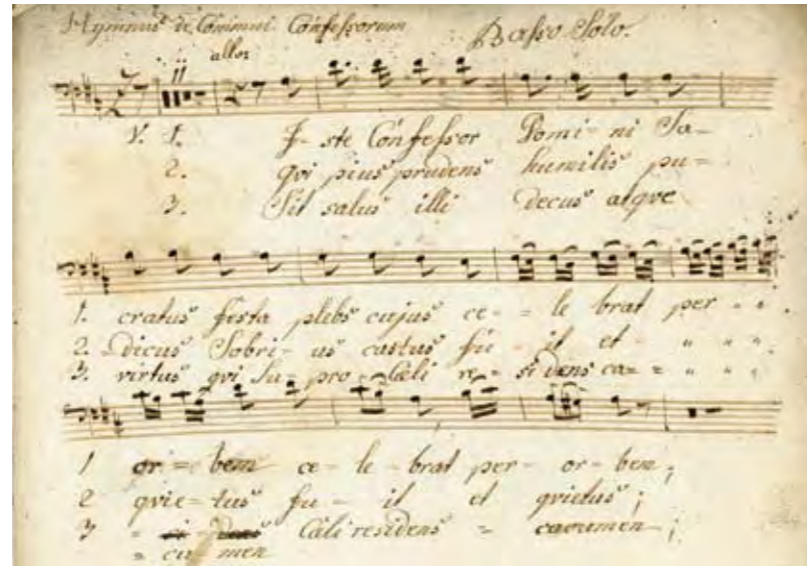 Hymnus de Communi Confessorum Basso Solo.
allo:
11
V. 1. I- ste Confessor Domi- ni Sa-
2. qvi pius prudens humilis pu=
3. Sit salus illi decus atqve
1. cratus festa plebs cujus ce- = le brat per - "
2. =dicus Sobri- us castus fu - it et - " " "
3. virtus qvi Su- pra Cæli re- sidens ca= = " " "
1 or = bem ce - le - brat per - or - bem;
2 qvie = tus fu - it et qvietus;
3 Cæli residens = cacumen;
= cu men